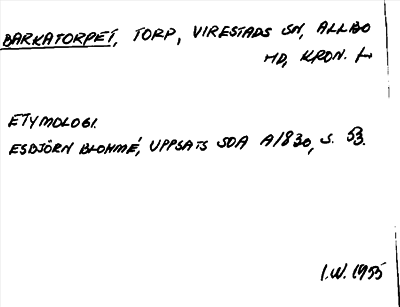 BARKATORPET, TORP, VIRESTADS SN, ALLBO
HD, KRON. L
ETYMOLOGI.
ESBJÖRN BLOHMÉ, UPPSATS SOA A1830, S. 53.
I.W. 1955